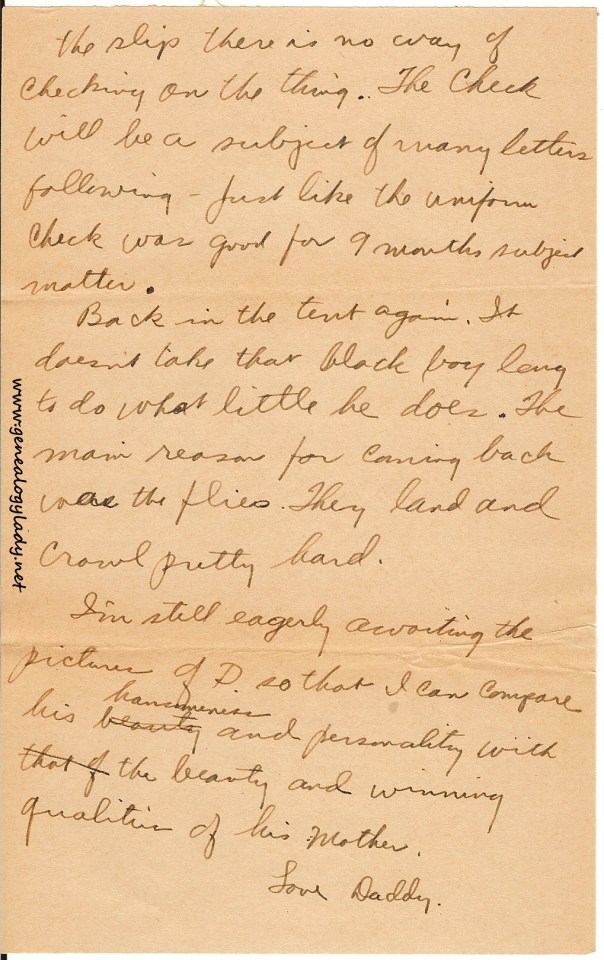 the slip there is no way of
checking on the thing. The Check
will be a subject of many letters
following - just like the uniform
check was good for 9 months subject
matter.
Back in the tent again. It
doesnt take that black boy long
to do what little he does. The
main reason for coming back
was the flies. They land and
crawl pretty hard.
I'm still eagerly awaiting the
pictures of D so that I can compare
hansomeness
his beauty and personality with
that of the beauty and winning
qualities of his Mother.
Love Daddy.
www.genealogylady.net